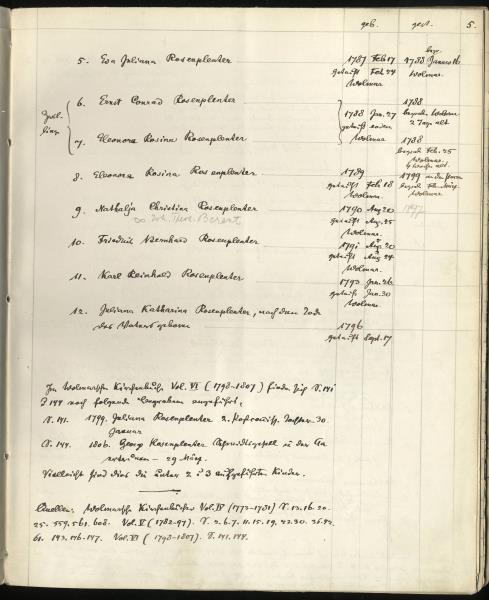 geb. gest. 5.
begr.
5. Eva Juliana Rosenplenter 1787 Feb 17 1788 Januar 16
getauft Feb. 24 Wolmar.
Wolmar
6. Ernst Conrad Rosenplenter 1788
Zwil- 1788 Jan. 27 begraben
getauft 2 Tage alt
linge
7. Eleonora Rosina Rosenplenter Wolmar 1788
begrab. Feb. 25
Wolmar.
4 Wochen alt.
8. Eleonora Rosina Rosenplenter 1789 1799
getauft Feb 18 begrab.
Wolmar. Wolmar
9. Nathalja Christina Rosenplenter 1790 Aug 20
∞ Joh. Theod. Berent getauft Aug. 25
Wolmar.
10. Friedrich Bernhard Rosenplenter 1791 Aug 20
getauft Aug 24
Wolmar.
11. Karl Reinhold Rosenplenter 1793 Jan. 26
getauft Jan. 30
Wolmar
12. Juliana Katharina Rosenplenter, nach dem Tode
des Vaters geboren 1796
getauft Sept. 17
Im Wolmarschen Kirchenbuch Vol. VI (1798-1807) finden sich S. 141
& 144 noch folgende Begraben angeführt,
S. 141. 1799. Juliana Rosenplenter 30.
Januar
S. 144. 1806. Georg Rosenplenter in der Aa
ertrunken – 29 März.
Vielleicht sind dies die unter 2 & 3 aufgeführten Kinder.
Quellen: Wolmarsche Kirchenbücher Vol. IV (1773-1781) S. 13. 16. 20.
25. 559. 561. 608. Vol. V (1782-97). S. 2. 6. 7. 11. 15. 19. 22. 30. 36. 42.
61. 143. 146. 147. Vol. VI (1798-1807). S. 141. 144.